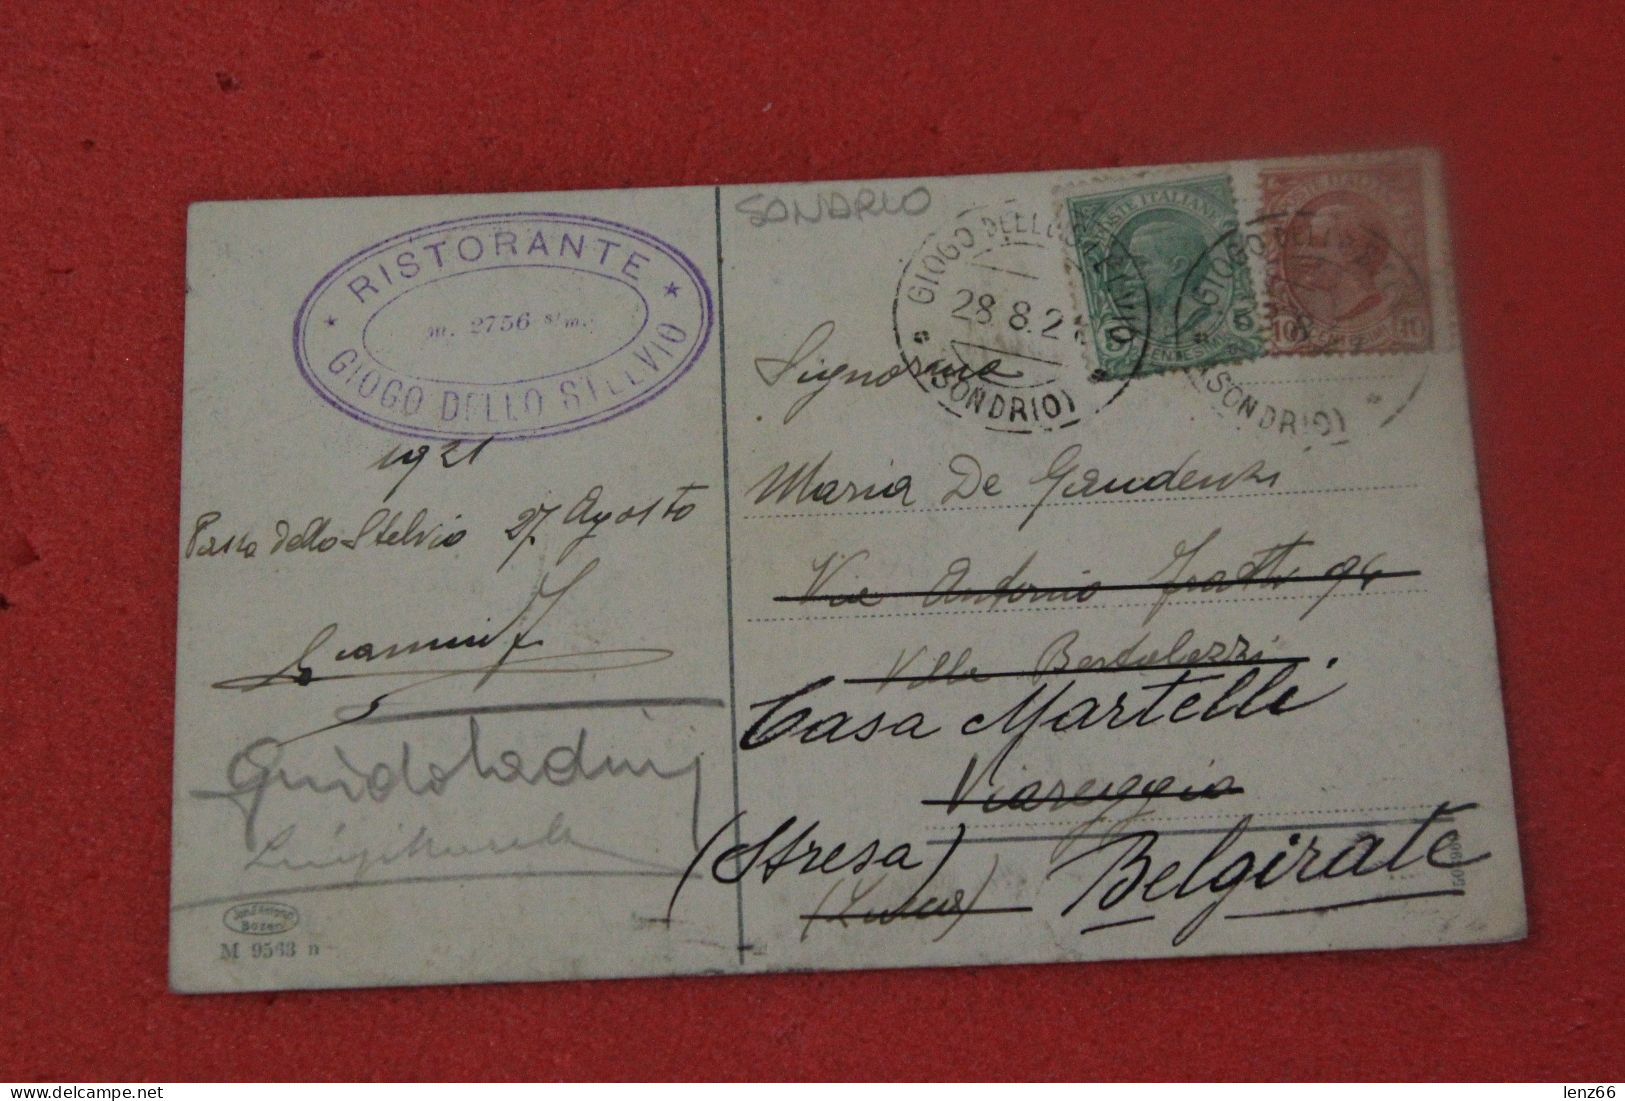 RISTORANTE
m. 2756 s/m.
GIOGO DELLO STELVIO
1921
Passo dello Stelvio 27 Agosto
SONDRIO
GIOGO DELLO STELVIO
28.8.2
(SONDRIO)
POSTE ITALIANE
5
CENTESIMI
GIOGO DELLO STELVIO
8
(SONDRIO)
10
Signorina
Maria De Gaudenzi
Via Antonio Fratti 94
Villa Bertolozzi
Casa Martelli
Viareggio
(Stresa) Belgirate
(Lucca)
Guido
Luigi
Bozen
M 9563 n
lenz66